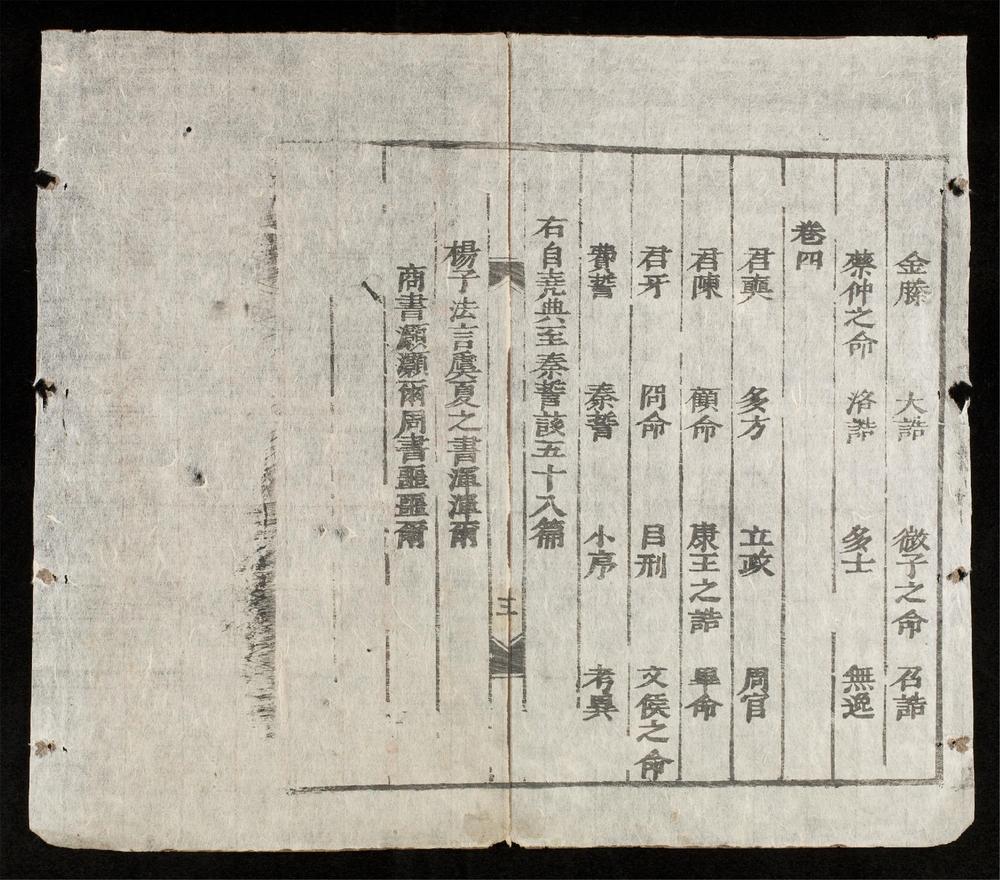 金縢 大誥 微子之命 召誥
蔡仲之命 洛誥 多士 無逸
卷四
君奭 多方 立政 周官
君陳 顧命 康王之誥 畢命
君牙 冏命 呂刑 文侯之命
費誓 秦誓 小序 考異
右自堯典至秦誓該五十八篇
三
楊子法言虞夏之書渾渾爾
商書灝灝爾周書噩噩爾